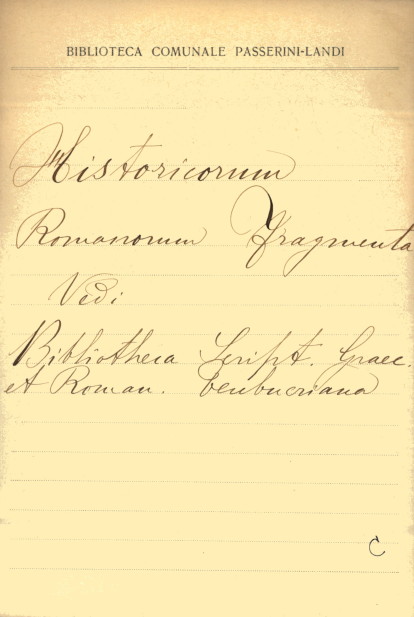 BIBLIOTECA COMUNALE PASSERINI-LANDI
Historicorum
Romanorum Fragmenta
Vedi
Bibliotheca Script. Graec.
et Roman. teubneriana
C